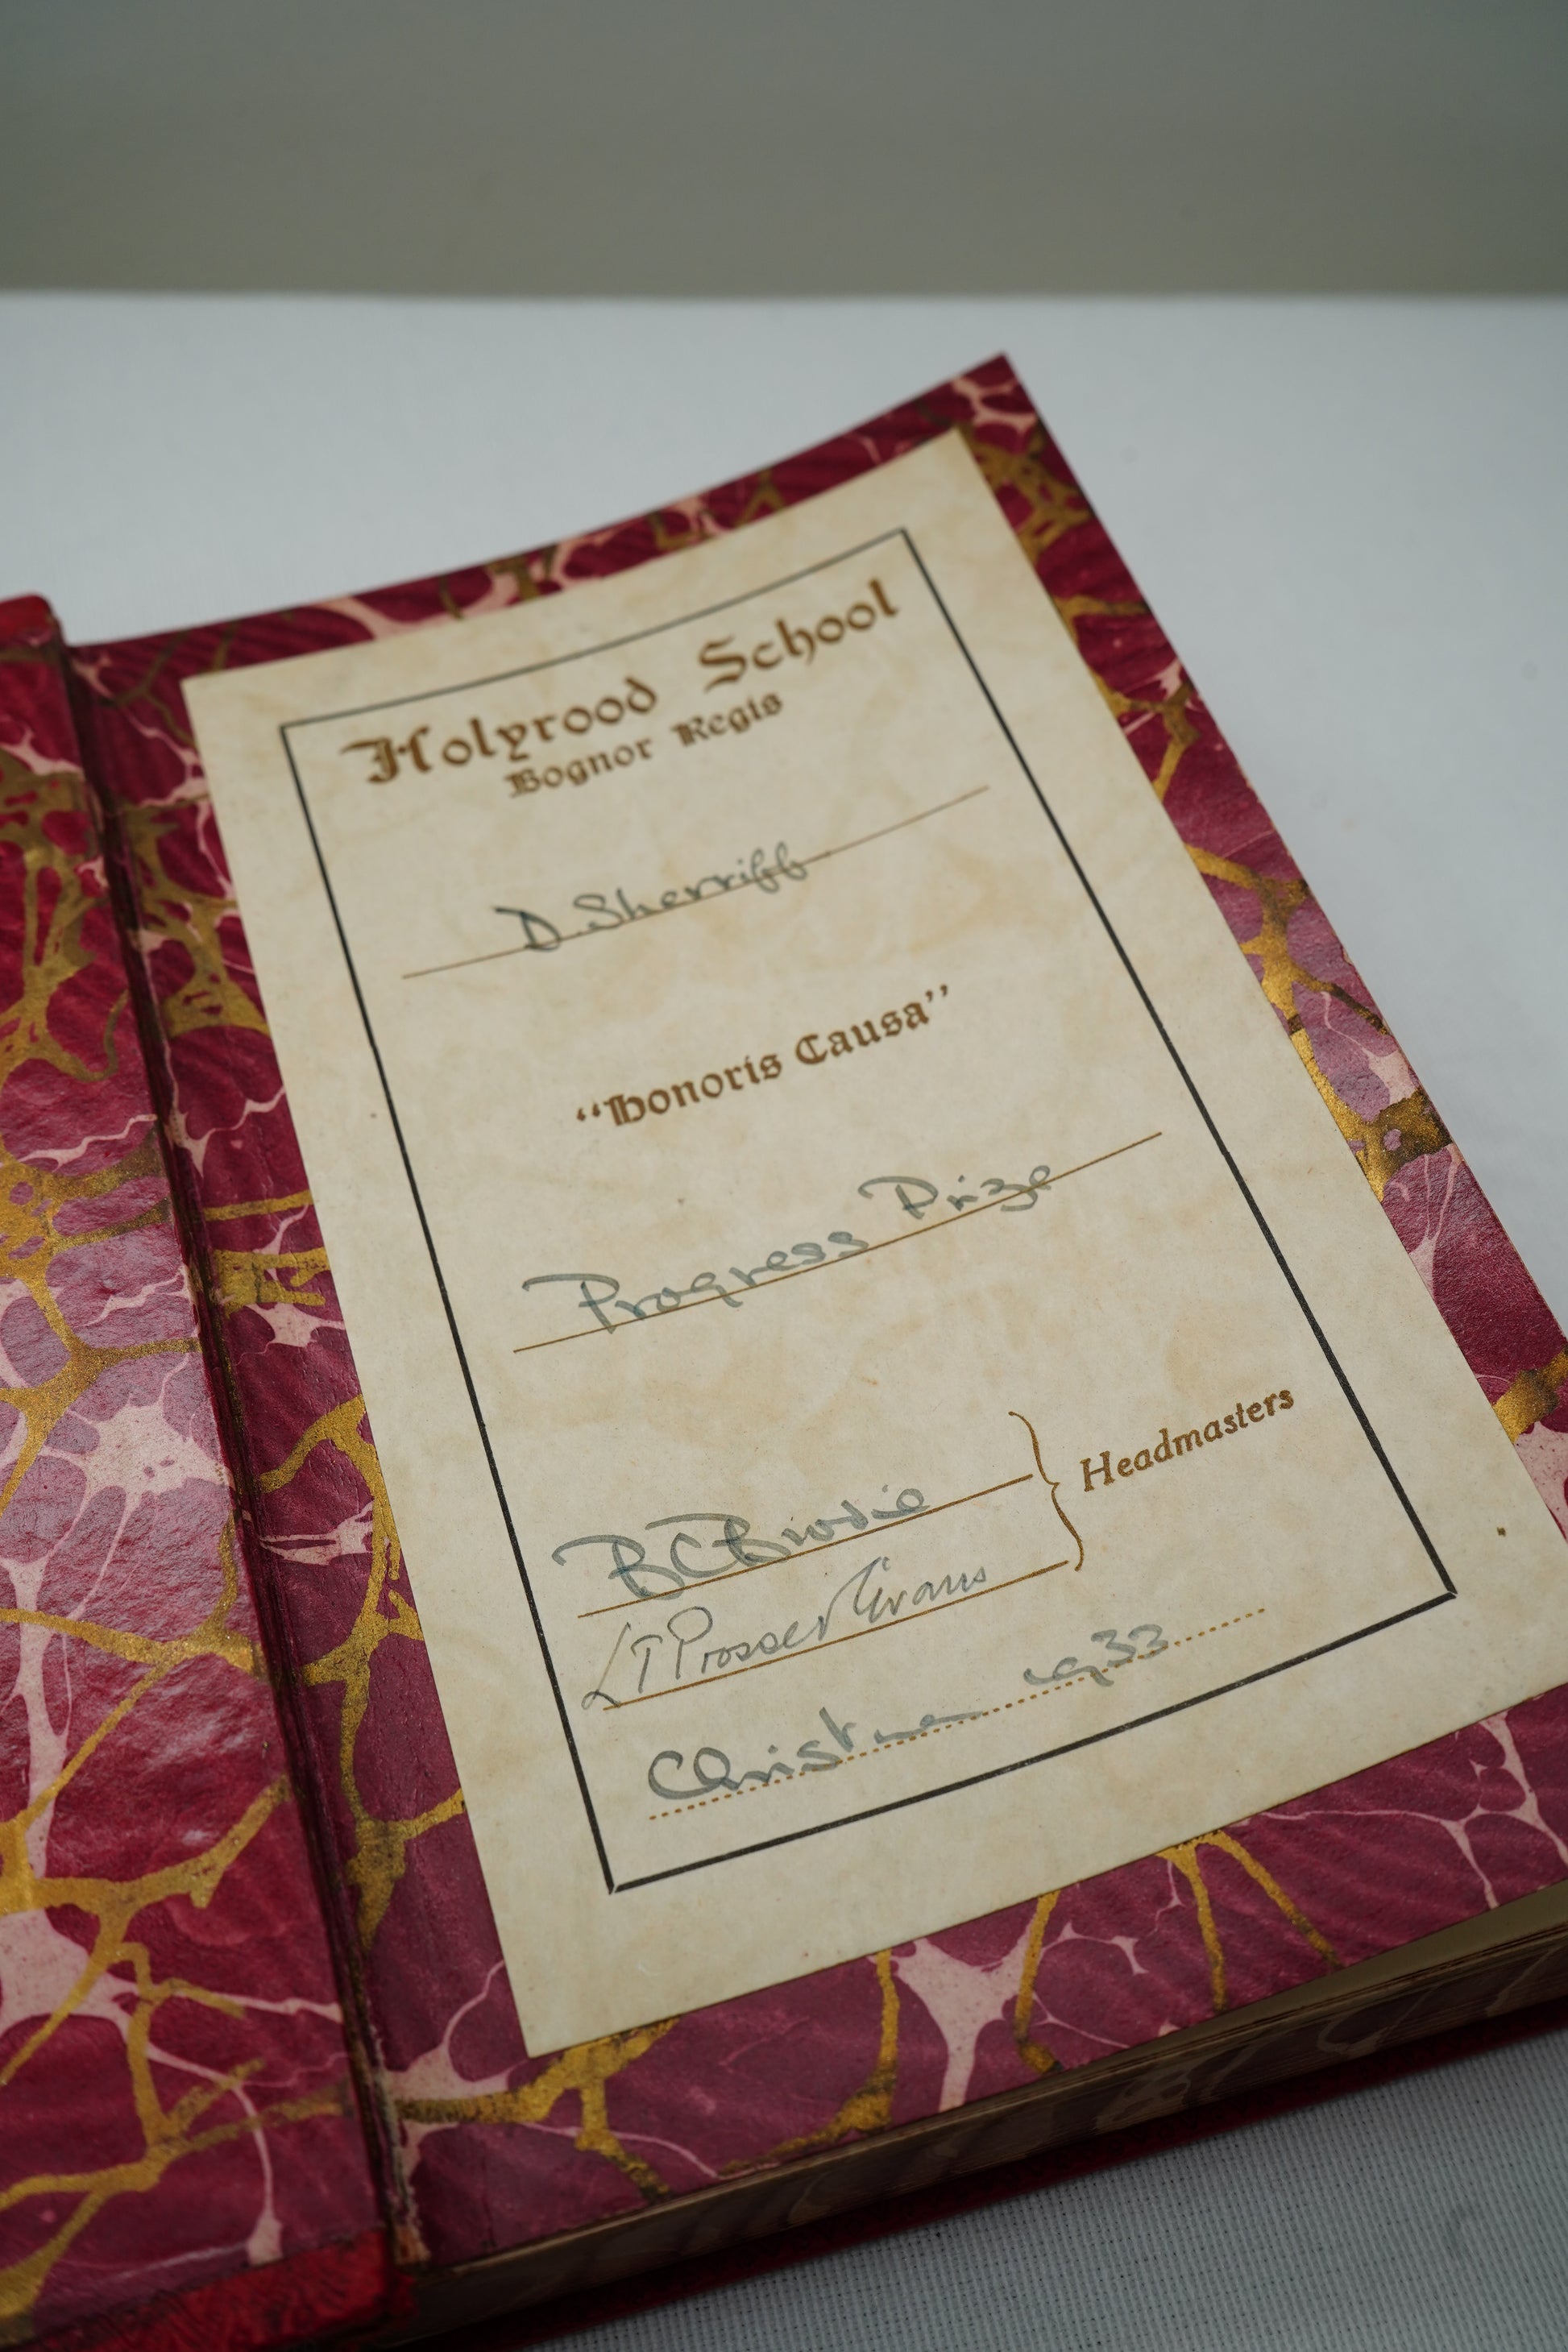 Holyrood School
Bognor Regis
D. Sherriff
“Honoris Causa”
Progress Prize
B C Brodie
Headmasters
L T Prosser Evans
Christmas 1933